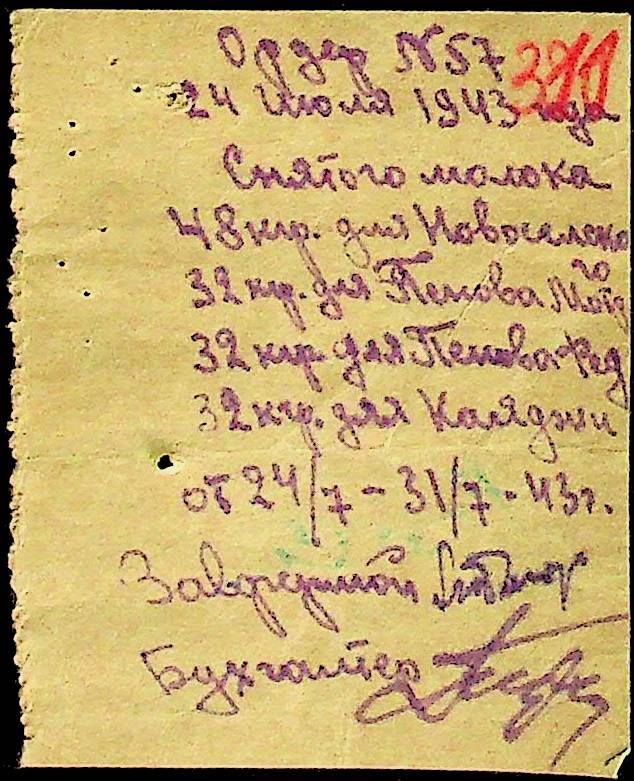 Ордер №57
24 июля 1943 года
Снятого молока
48 кгр. для Новоселско
го
32 кгр. для Пенова
32 кгр. для Пенова Фед
32 кгр. для Каляджи
от 24/7 - 31/7 - 43 г.
Бухгалтер